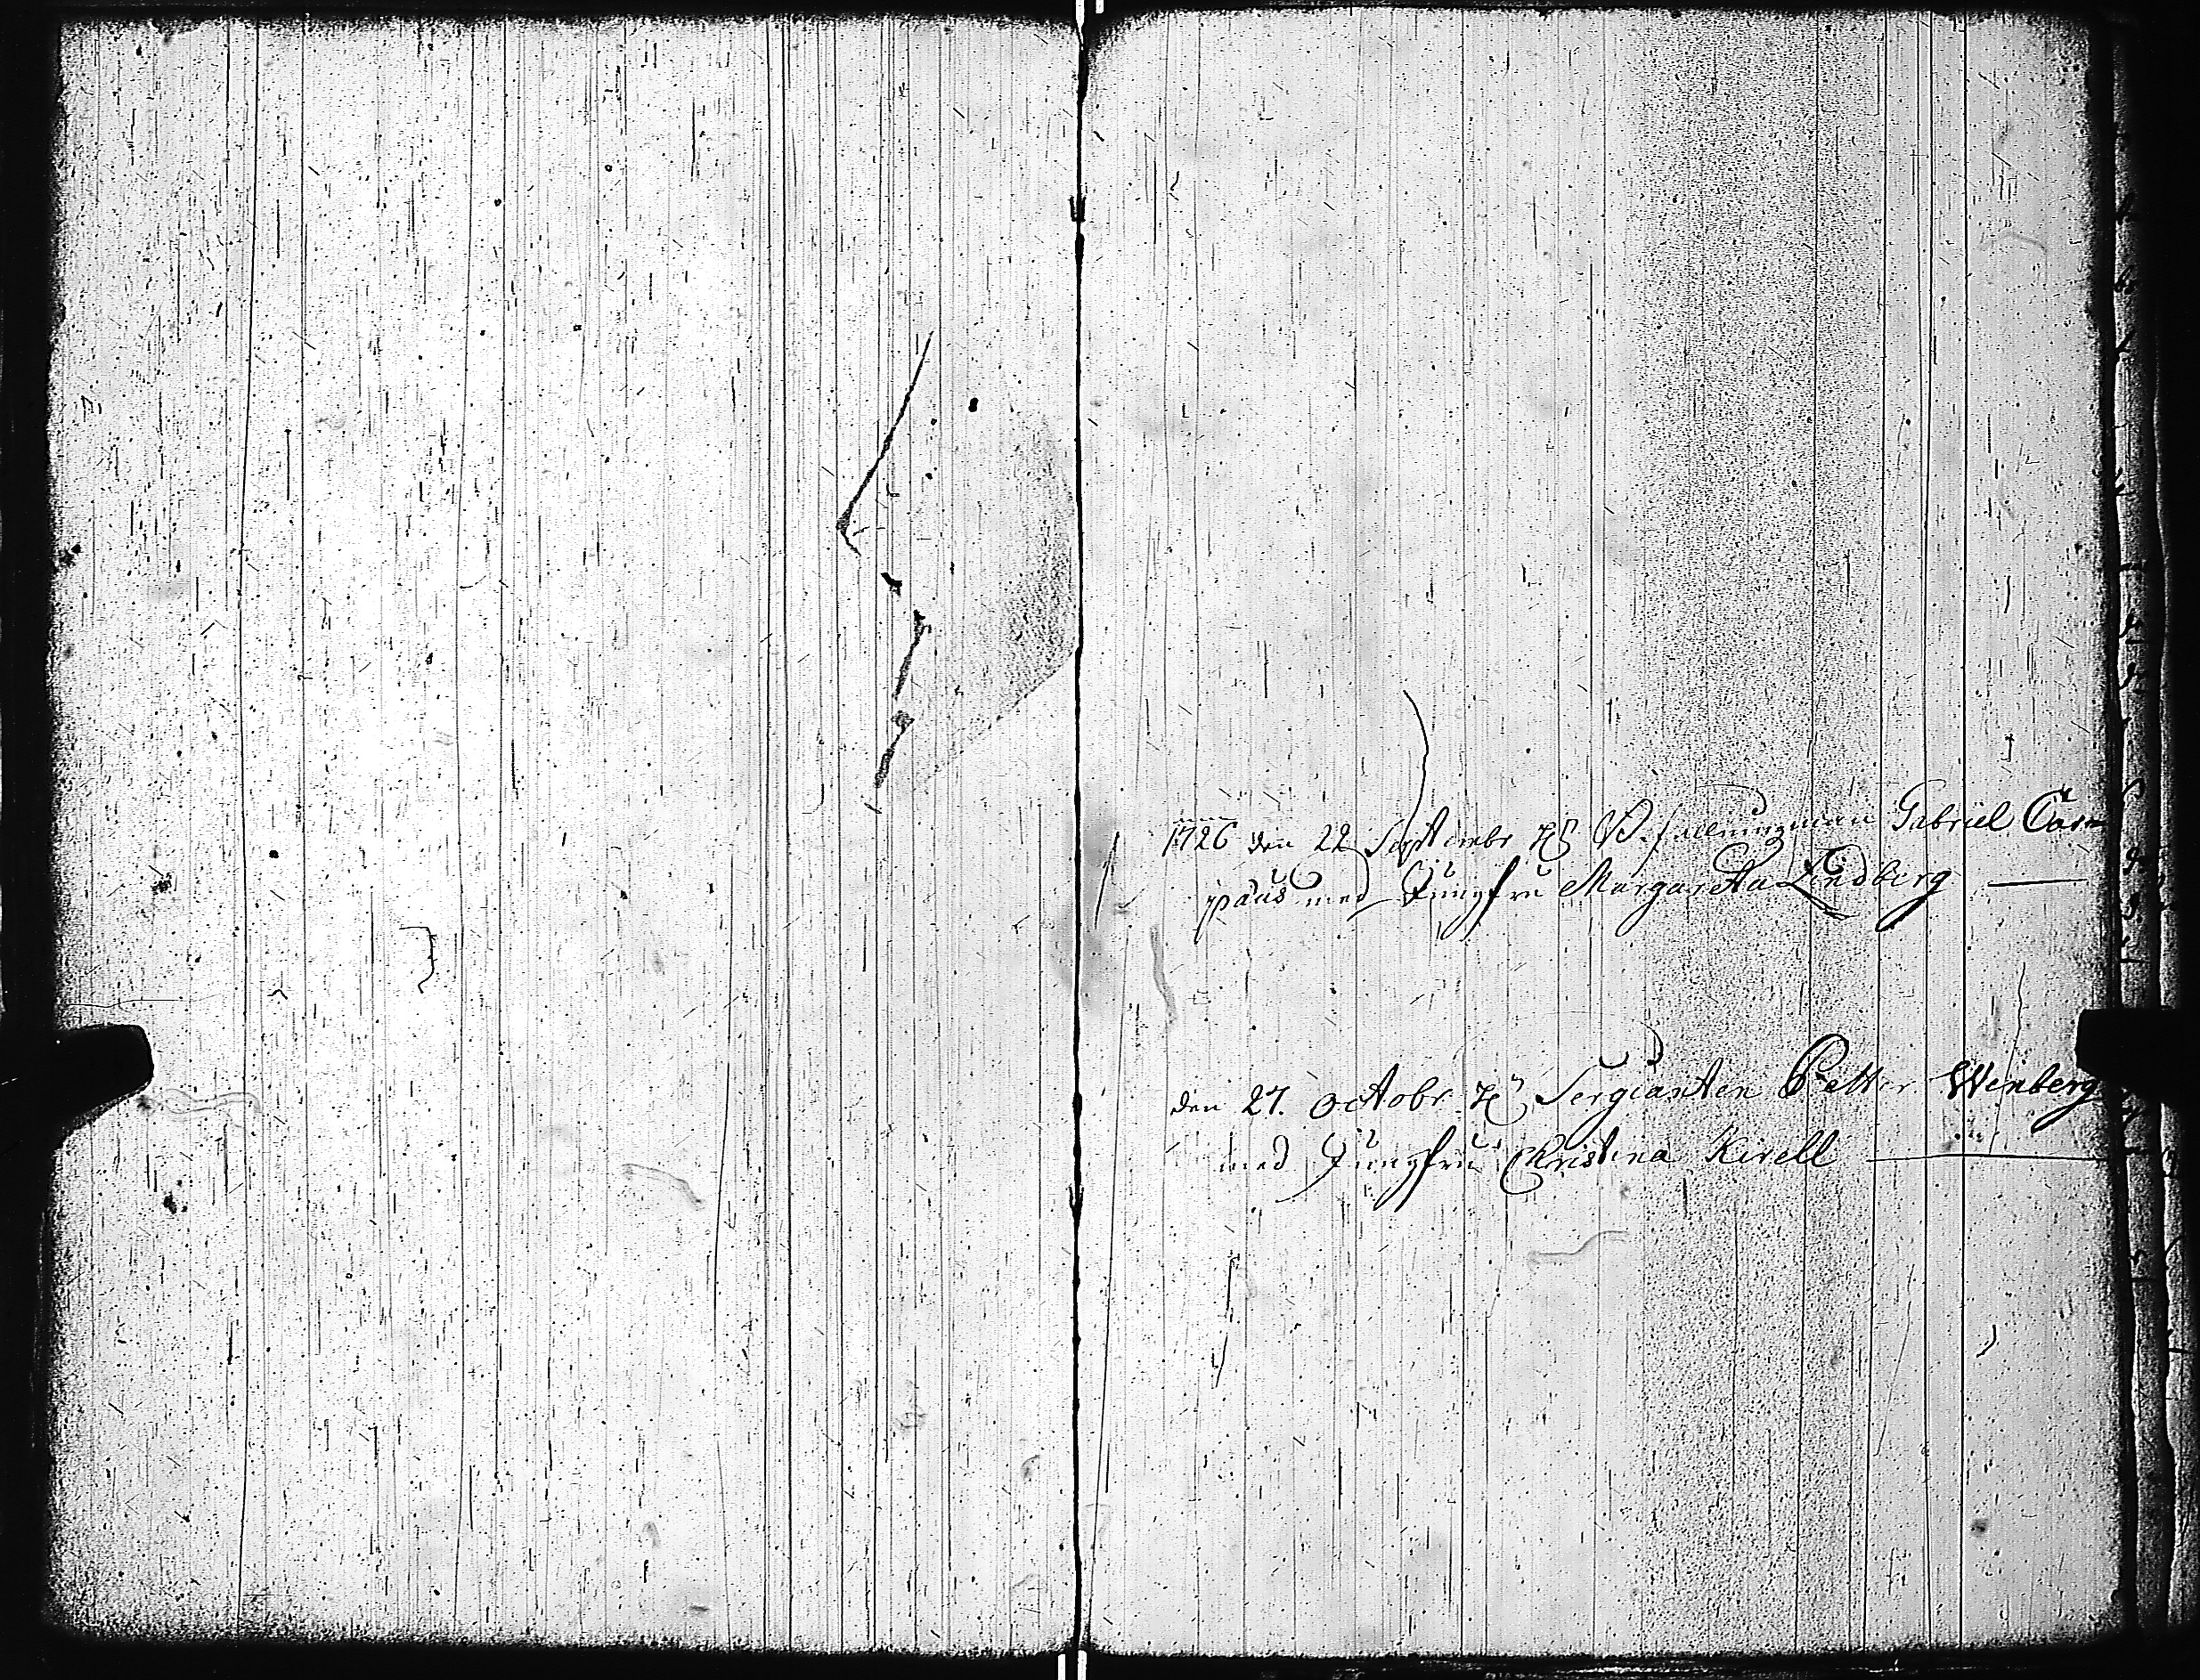 1726 den 22 Septembr H Gabriel Cam
päus med Jungfru Margareta Lindberg
den 27. Octobr H Sergianten Petter Wenberg
med Jungfru Christina Kirell